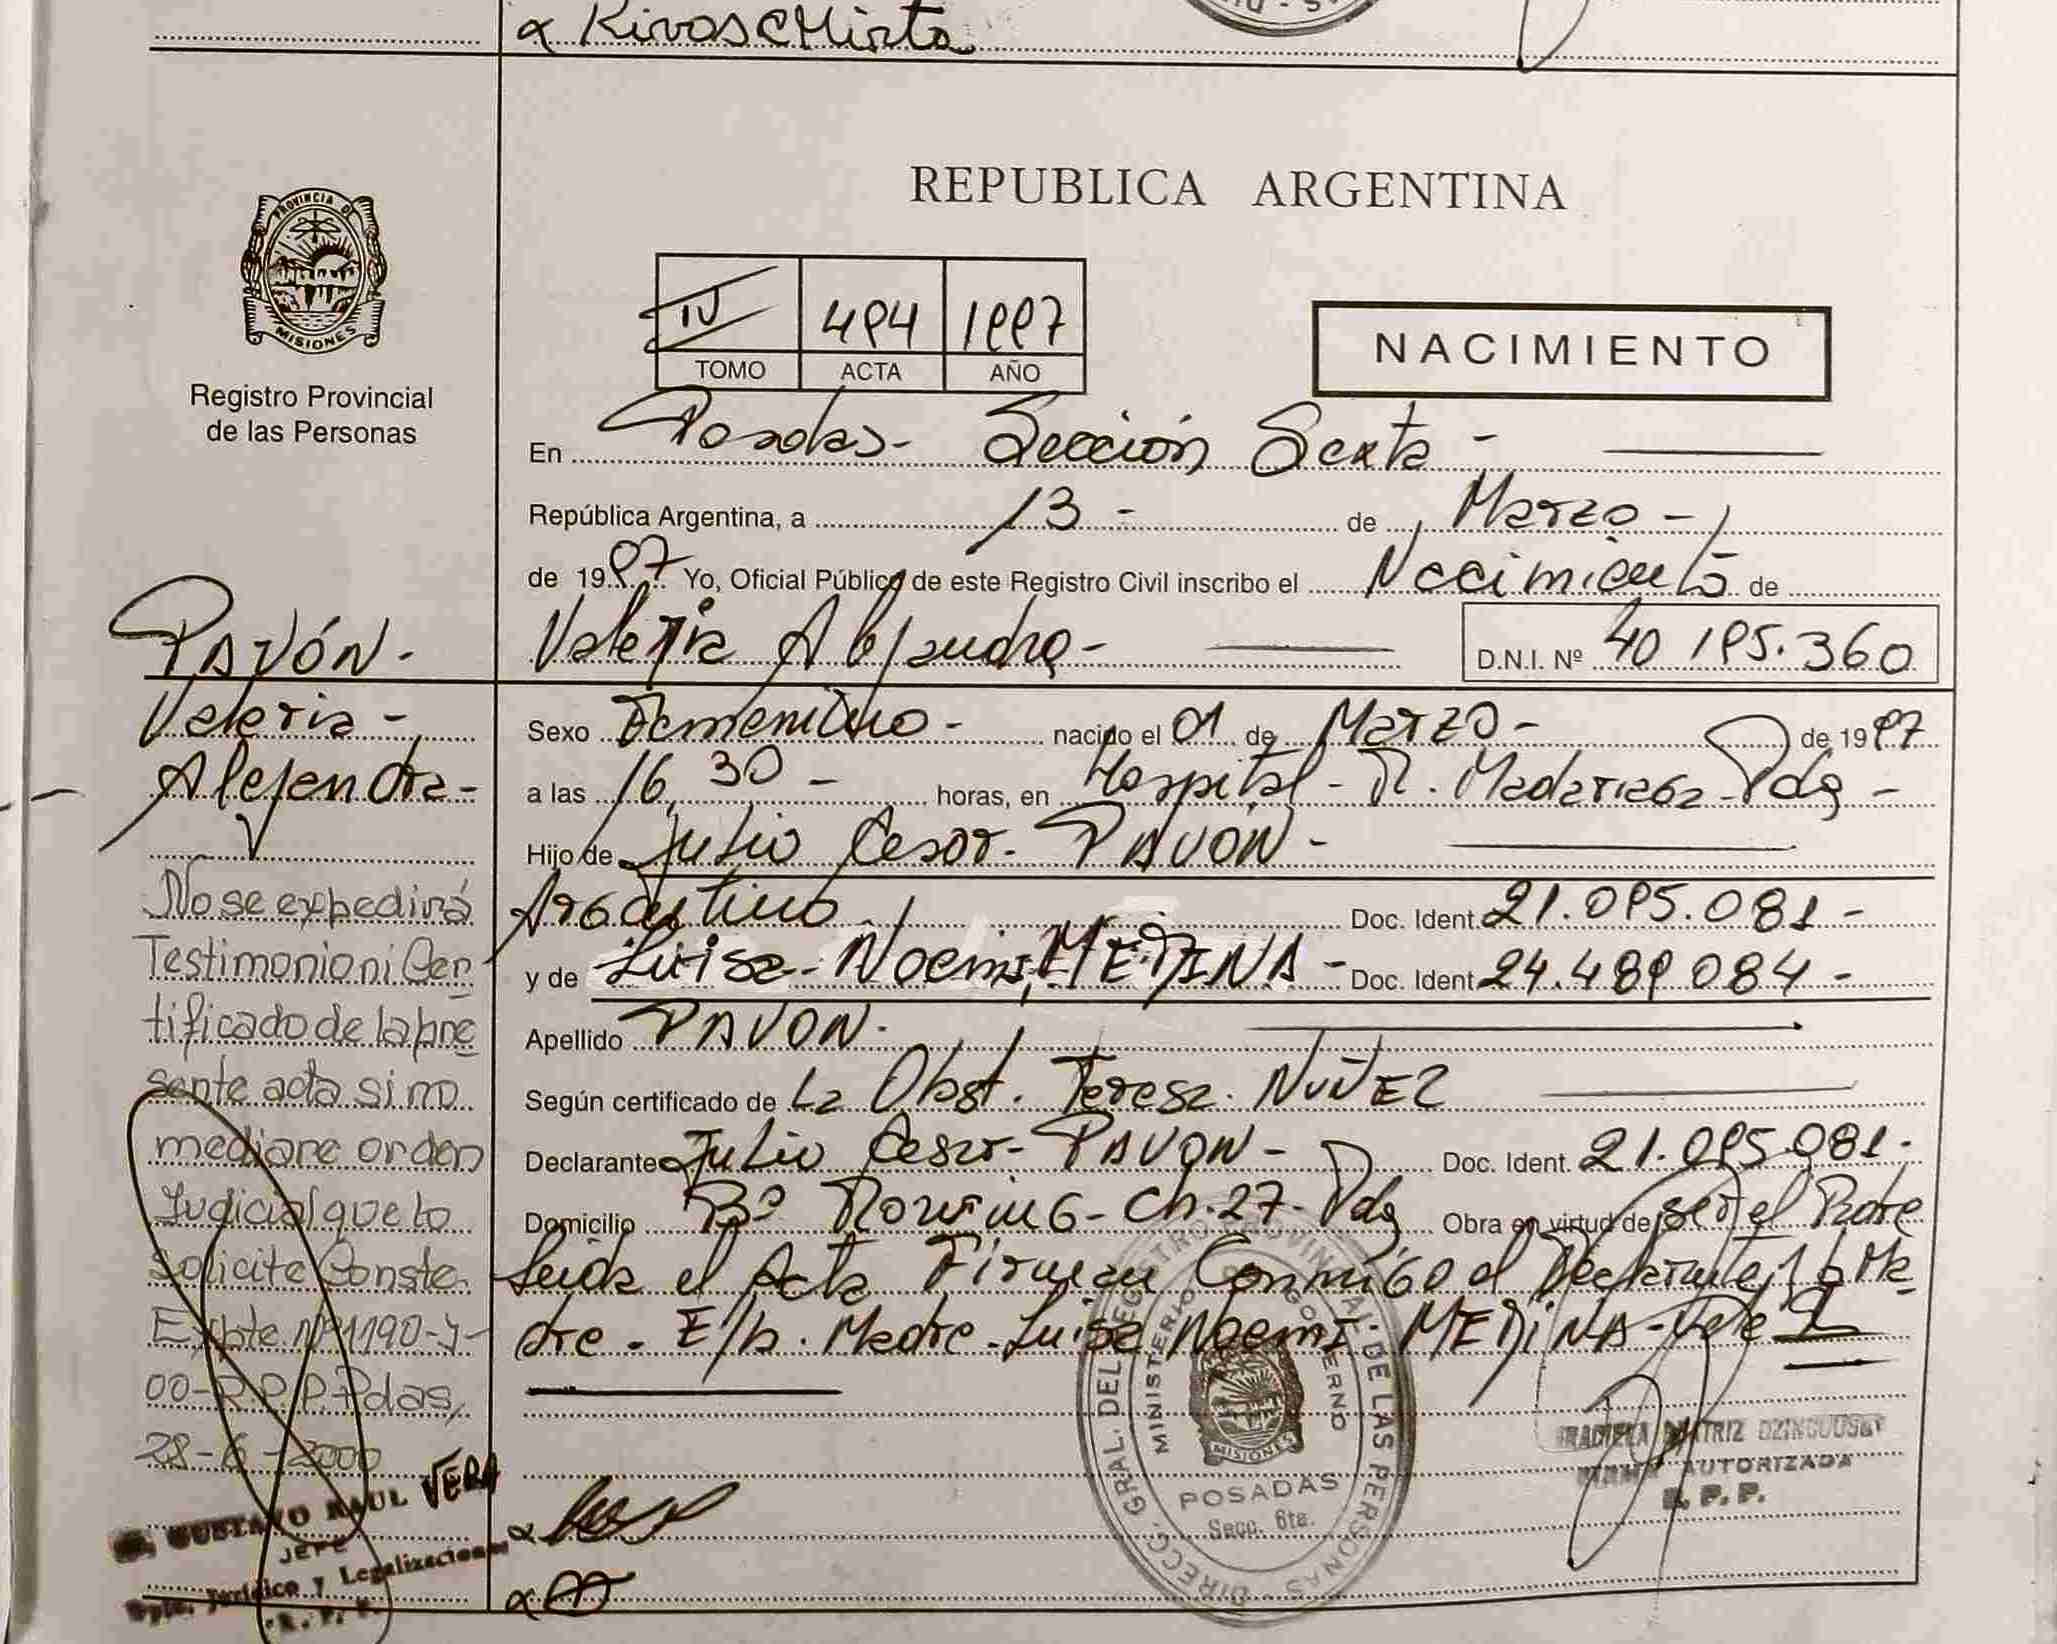 α Rivas Mirta
PROVINCIA DE
MISIONES
Registro Provincial
de las Personas
REPUBLICA ARGENTINA
IV 494 1997
TOMO ACTA AÑO
NACIMIENTO
En Posadas - Sección Sexta -
República Argentina, a 13 - de Marzo -
de 1997 Yo, Oficial Público de este Registro Civil inscribo el Nacimiento de
Valeria Alejandra - D.N.I. Nº 40 195.360
Sexo Femenino - nacido el 01 de Marzo - de 1997
a las 16,30 - horas, en Hospital - R. Madariaga Pdas -
Hijo de Julio Cesar - PAVÓN -
Argentino Doc. Ident. 21.095.081 -
y de Luisa - Noemi, MEDINA - Doc. Ident. 24.489 084 -
Apellido PAVON.
Según certificado de La Obst. Teresa NUÑEZ
Declarante Julio Cesar - PAVON - Doc. Ident. 21.095.081 -
Domicilio Bº Rowing - Ch. 27 - Pdas Obra en virtud de ser el Padre
Leida el Acta Firman Conmigo el Declarante y la Ma-
dre - E/b. Madre - Luisa Noemi MEDINA - Vale
PAVÓN -
Valeria -
Alejandra -
No se expedirá
Testimonio ni Cer
tificado de la pre
sente acta si no
mediare orden
Judicial que lo
solicite Conste.
Expte. Nº 1190-y-
00-R.P.P. Pdas,
28-6-2000
GUSTAVO RAUL VERA
JEFE
Dpto. Jurídico y Legalizaciones
R. P. P.
DIRECC. GRAL. DEL REGISTRO PROVINCIAL DE LAS PERSONAS
MINISTERIO DE GOBIERNO
MISIONES
POSADAS
Secc. 6ta.
GRACIELA BEATRIZ
FIRMA AUTORIZADA
R. P. P.